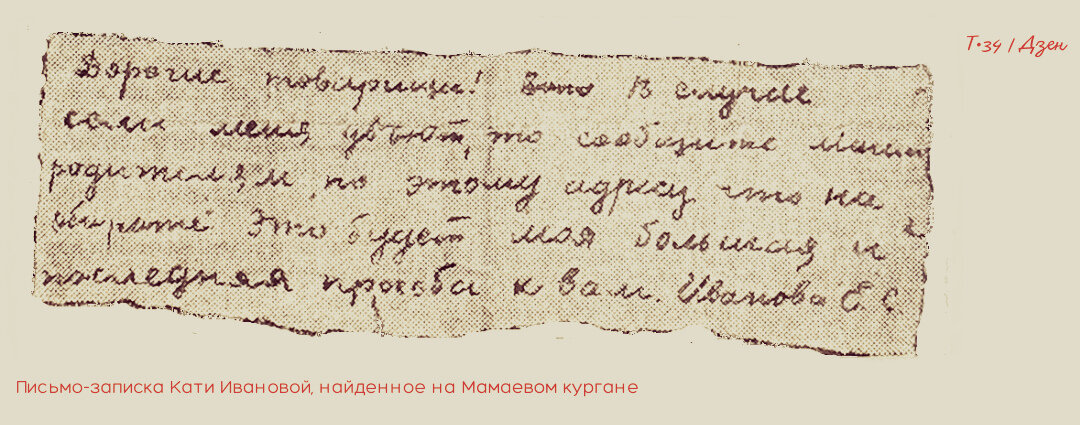 Т•34 | Дзен
Дорогие товарищи! В случае
если меня убьют, то сообщите моим
родителям по этому адресу что на
обороте Это будет моя большая и
последняя просьба к Вам. Иванова Е. С
Письмо-записка Кати Ивановой, найденное на Мамаевом кургане